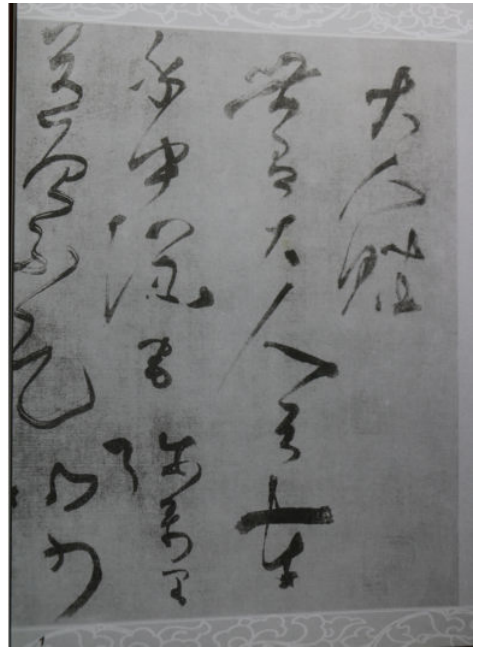 大人賦
世有大人兮在
乎中州宅彌萬里
兮曾不足以少